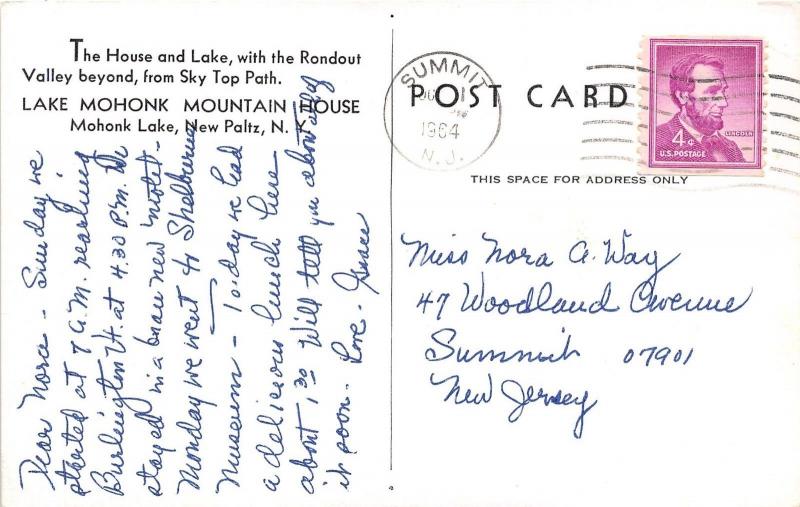 The House and Lake, with the Rondout
Valley beyond, from Sky Top Path.
LAKE MOHONK MOUNTAIN HOUSE
Mohonk Lake, New Paltz, N. Y.
Dear Nora - Sunday we
started at 7 A.M. reaching
Burlington Vt. at 4.30 P.M. We
stayed in a brand new motel -
Monday we went to Shelburne
Museum - To-day we had
a delicious lunch here
about 1:30 Will tell you about all of
it soon. Love - Grace
SUMMIT
1964
N. J.
POST CARD
LINCOLN
4¢
U.S. POSTAGE
THIS SPACE FOR ADDRESS ONLY
Miss Nora A. Way
47 Woodland Avenue
Summit 07901
New Jersey